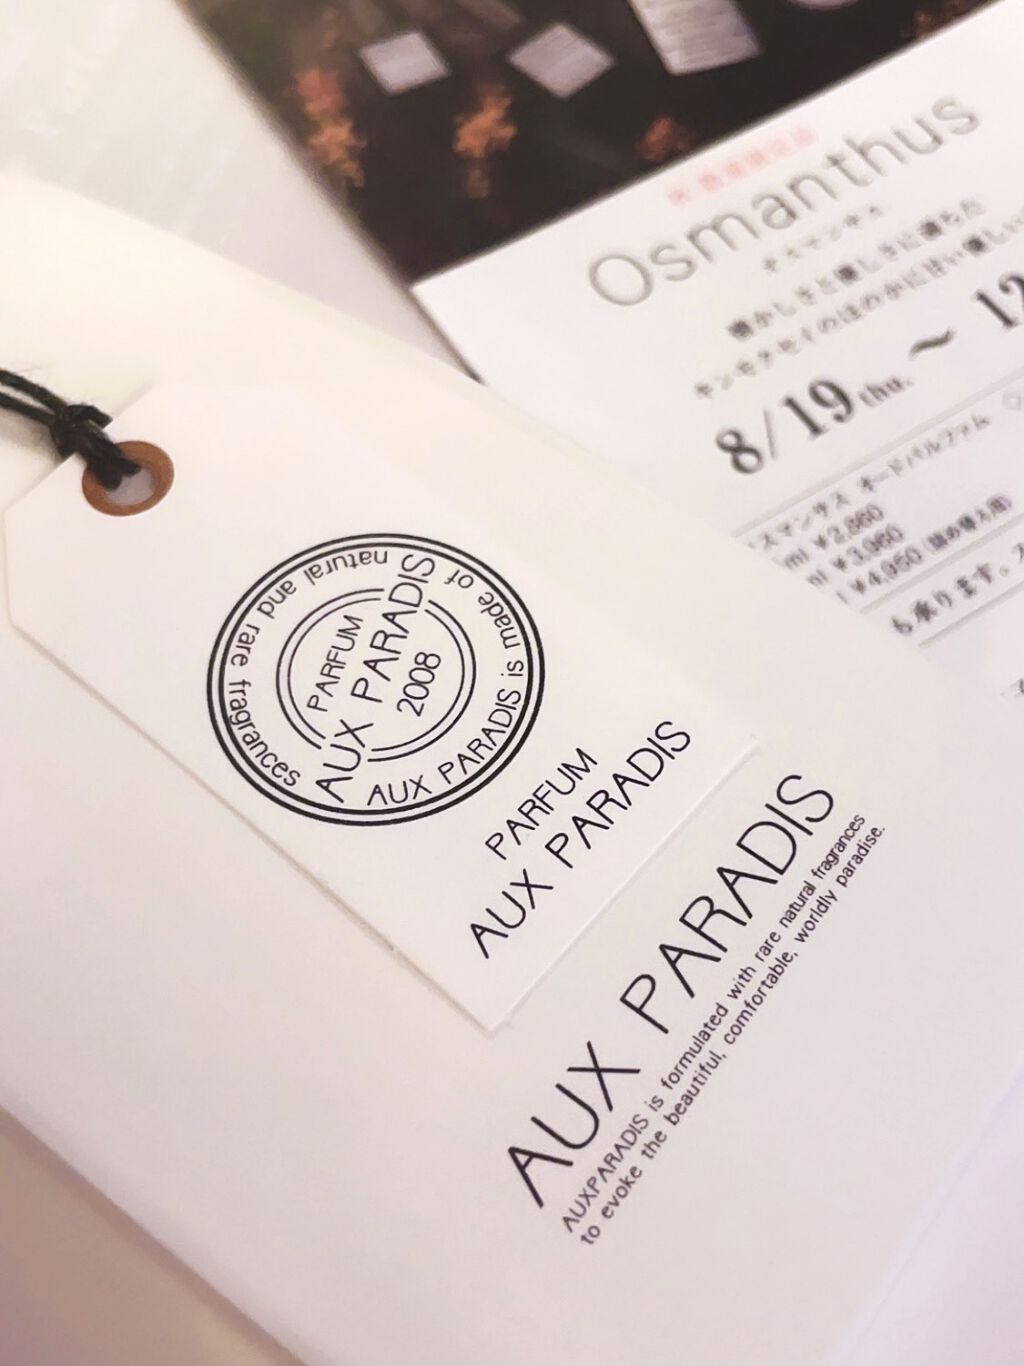 Osmanthus
オスマンサス
懐かしさと優しさに満ちた
キンモクセイのほのかに甘い優しい
8/19thu.～12
スマンサス オードパルファム
ml ¥2,860
ml ¥3,960
¥4,950 (詰め替え用)
も承ります。ス
AUX PARADIS is made of natural and rare fragrances
PARFUM
AUX PARADIS
2008
PARFUM
AUX PARADIS
AUX PARADIS
AUXPARADIS is formulated with rare natural fragrances
to evoke the beautiful, comfortable, worldly paradise.